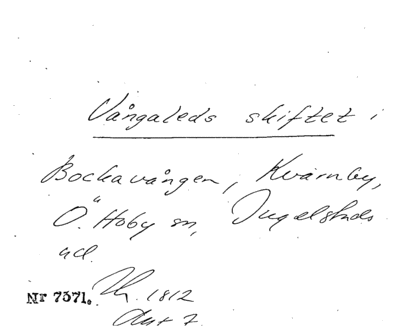 Vångaleds skiftet i
Bockavången, Kvärnby,
Ö. Hoby sn, Ingelstads
hd.
Nr 7571. 1812
Aut 7